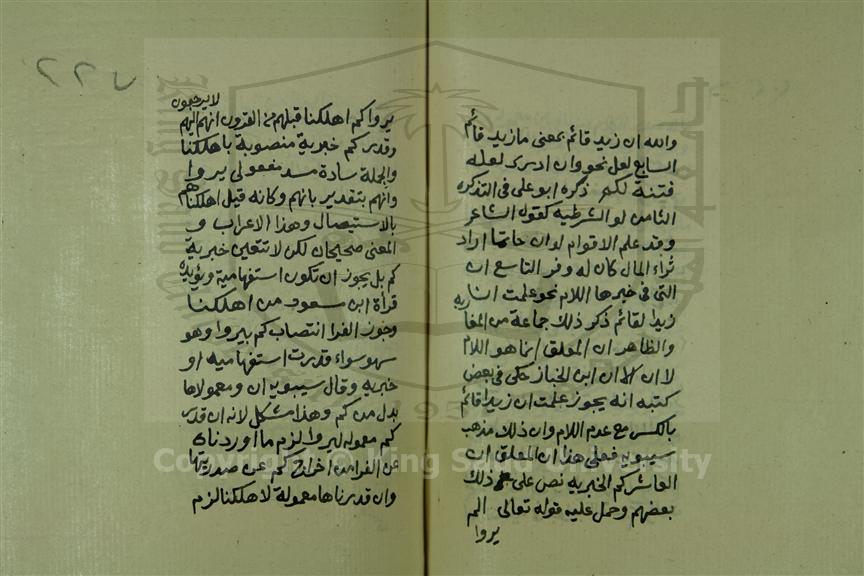 والله ان زيد قائم بمعنى مازيد قائم
السابع لعل نحو وان ادري لعله
فتنة لكم ذكره ابو على فى التذكره
الثامن لو الشرطيه كقول الشاعر
وقد علم الاقوام لو ان حاتما اراد
ثراء المال كان له وفر التاسع ان
التى فى خبرها اللام نحو علمت ان
زيدا لقائم ذكر ذلك جماعة من المغاربه
والظاهر ان المعلق انما هو اللام
لا ان الا ان ابن الخباز حكى فى بعض
كتبه انه يجوز علمت ان زيدا قائم
بالكسر مع عدم اللام وان ذلك مذهب
سيبويه فعلى هذا ان المعلق ان
العاشر كم الخبريه نص على ذلك
بعضهم وحمل عليه قوله تعالى الم
يروا
٢٢٧
يروا كم اهلكنا قبلهم من القرون انهم اليهم
لا يرجعون
وقدر كم خبرية منصوبة باهلكنا
والجملة سادة مسد مفعولى يروا
وانهم بتقدير بانهم وكانه قيل اهلكناهم
بالاستيصال وهذا الاعراب و
المعنى صحيحان لكن لا تتعين خبرية
كم بل يجوز ان تكون استفهامية ويؤيده
قرأة ابن مسعود من اهلكنا
وجوز الفرا انتصاب كم بيروا وهو
سهو سواء قدرت استفهاميه او
خبريه وقال سيبويه ان ومعمولاها
بدل من كم وهذا مشكل لانه ان قدر
كم معموله ليروا لزم ما اوردناه
عن الفرا من اخراج كم عن صدريتها
وان قدرناها معمولة لاهلكنا لزم
Copyright © King Saud University